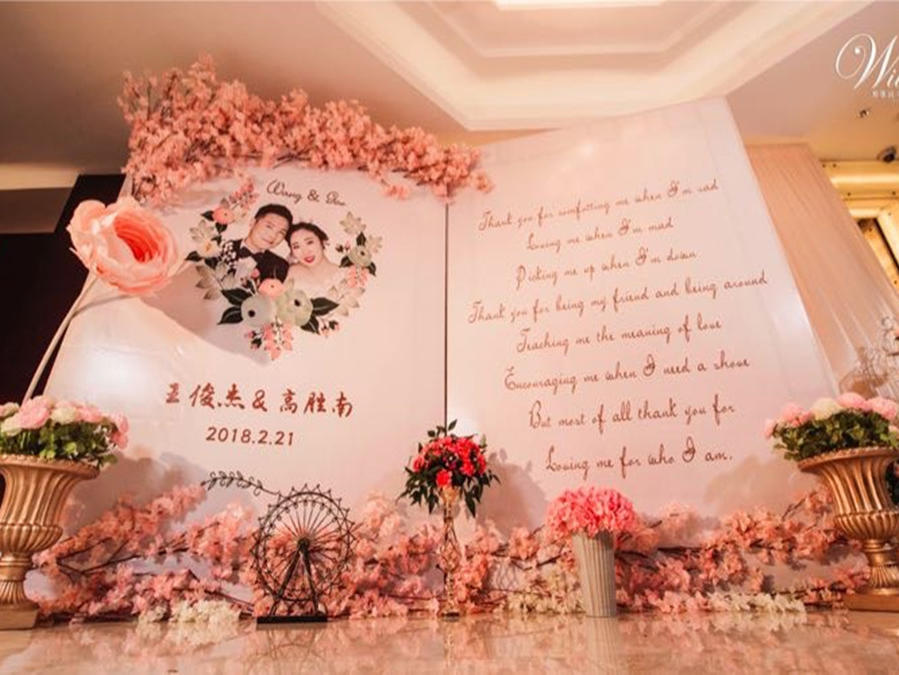 Wang & Gao
王俊杰&高胜南
2018.2.21
Thank you for comforting me when I'm sad
Loving me when I'm mad
Picking me up when I'm down
Thank you for being my friend and being around
Teaching me the meaning of love
Encouraging me when I need a shove
But most of all thank you for
Loving me for who I am.